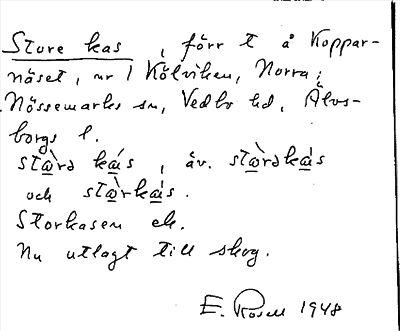 Store kas, förr t å Koppar-
näset, nr 1 Kölviken, Norra;
Nössemarks sn, Vedbo hd, Älvs-
borgs l.
och
Storkasen ek.
Nu utlagt till skog.
E. Rosell 1948